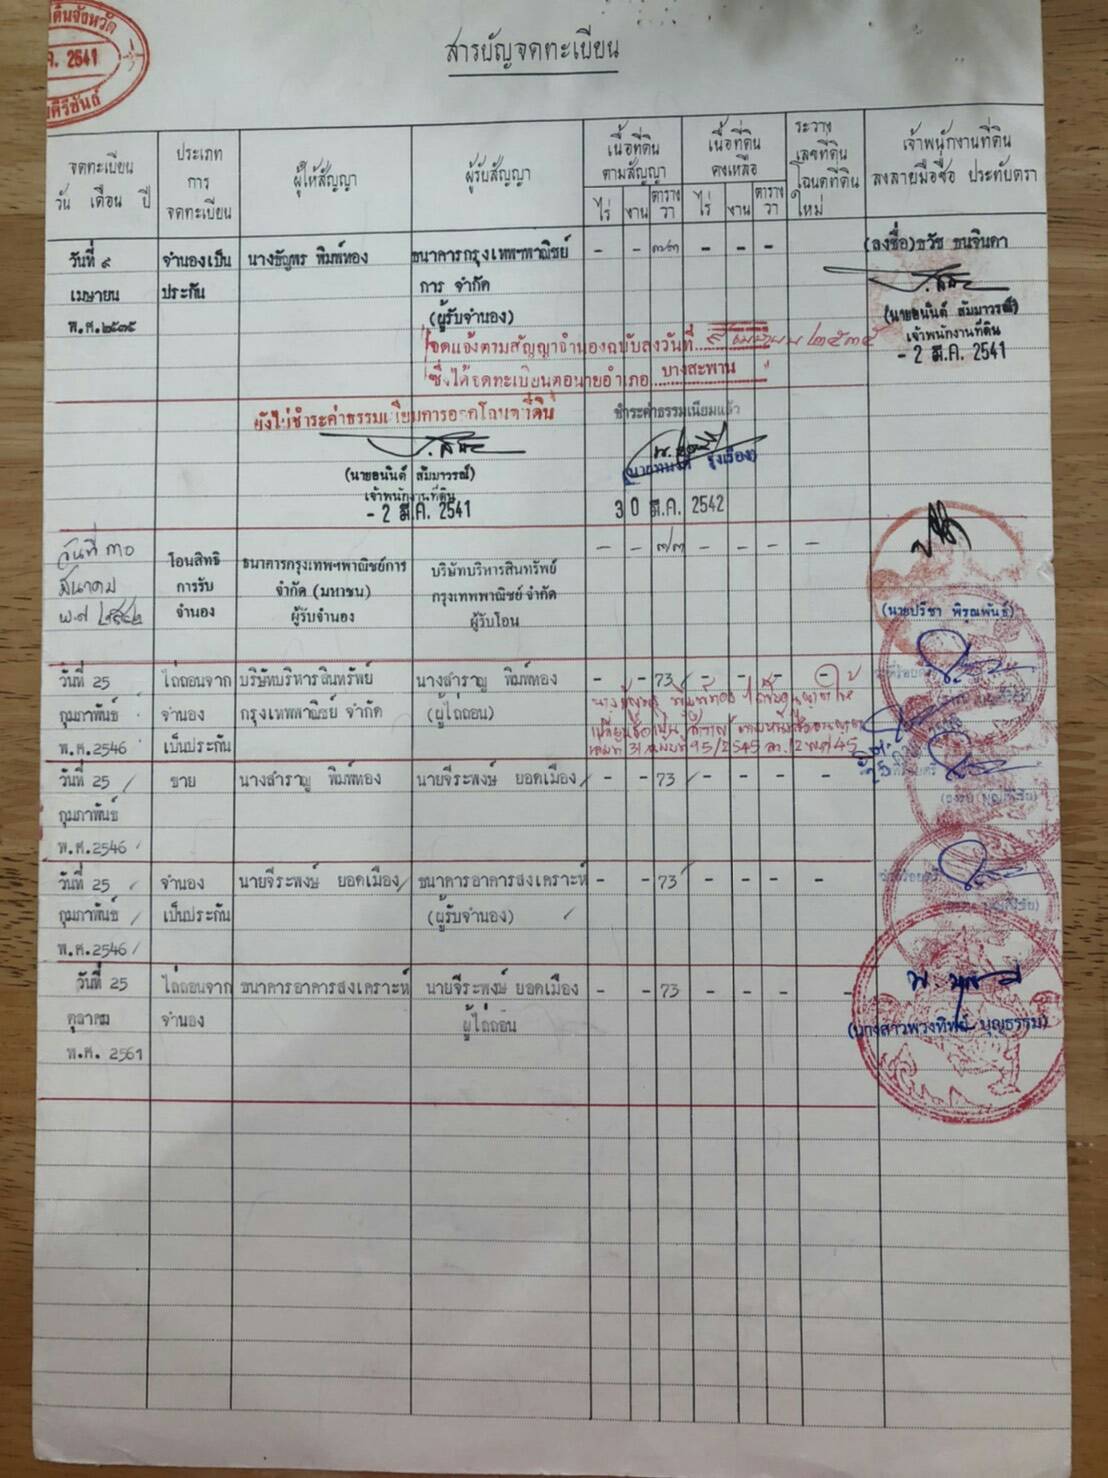 ดินจังหวัด
ค. 2541
คีรีขันธ์
สารบัญจดทะเบียน
จดทะเบียน
วัน เดือน ปี
ประเภท
การ
จดทะเบียน
ผู้ให้สัญญา
ผู้รับสัญญา
เนื้อที่ดิน
ตามสัญญา
ไร่ งาน ตาราง วา
เนื้อที่ดิน
คงเหลือ
ไร่ งาน ตาราง วา
ระวาง
เลขที่ดิน
โฉนดที่ดิน
ใหม่
เจ้าพนักงานที่ดิน
ลงลายมือชื่อ ประทับตรา
วันที่ ๙ จำนองเป็น นางธัญพร พิมพ์ทอง ธนาคารกรุงเทพฯพาณิชย์ - - ๗๓ - - - (ลงชื่อ)ธวัช ธนจินดา
เมษายน ประกัน การ จำกัด
พ.ศ.๒๕๓๕ (ผู้รับจำนอง)
(นายอนันต์ สัมมาวรณ์)
เจ้าพนักงานที่ดิน
- 2 มี.ค. 2541
จดแจ้งตามสัญญาจำนองฉบับลงวันที่ ๙ เมษายน ๒๕๓๕
ซึ่งได้จดทะเบียนต่อนายอำเภอ บางสะพาน
ยังไม่ชำระค่าธรรมเนียมการออกโฉนดที่ดิน
ชำระค่าธรรมเนียมแล้ว
(นายอนันต์ สัมมาวรณ์)
เจ้าพนักงานที่ดิน
- 2 มี.ค. 2541
30 มี.ค. 2542
วันที่ ๓๐ โอนสิทธิ ธนาคารกรุงเทพฯพาณิชย์การ บริษัทบริหารสินทรัพย์ - - ๗๓ - - -
มีนาคม การรับ จำกัด (มหาชน) กรุงเทพพาณิชย์ จำกัด
พ.ศ ๒๕๔๒ จำนอง ผู้รับจำนอง ผู้รับโอน
(นายปรีชา พิรุณพันธ์)
วันที่ 25 ไถ่ถอนจาก บริษัทบริหารสินทรัพย์ นางสำราญ พิมพ์ทอง - - 73 - - - -
กุมภาพันธ์ จำนอง กรุงเทพพาณิชย์ จำกัด (ผู้ไถ่ถอน)
พ.ศ.2546 เป็นประกัน
นางธัญพร พิมพ์ทอง
วันที่ 25 ขาย นางสำราญ พิมพ์ทอง นายจีระพงษ์ ยอดเมือง - - 73 - - - -
กุมภาพันธ์
พ.ศ.2546
วันที่ 25 จำนอง นายจีระพงษ์ ยอดเมือง ธนาคารอาคารสงเคราะห์ - - 73 - - - -
กุมภาพันธ์ เป็นประกัน (ผู้รับจำนอง)
พ.ศ.2546
วันที่ 25 ไถ่ถอนจาก ธนาคารอาคารสงเคราะห์ นายจีระพงษ์ ยอดเมือง - - 73 - - - -
ตุลาคม จำนอง ผู้ไถ่ถอน
พ.ศ. 2561
(นางสาวพวงทิพย์ บุญธรรม)